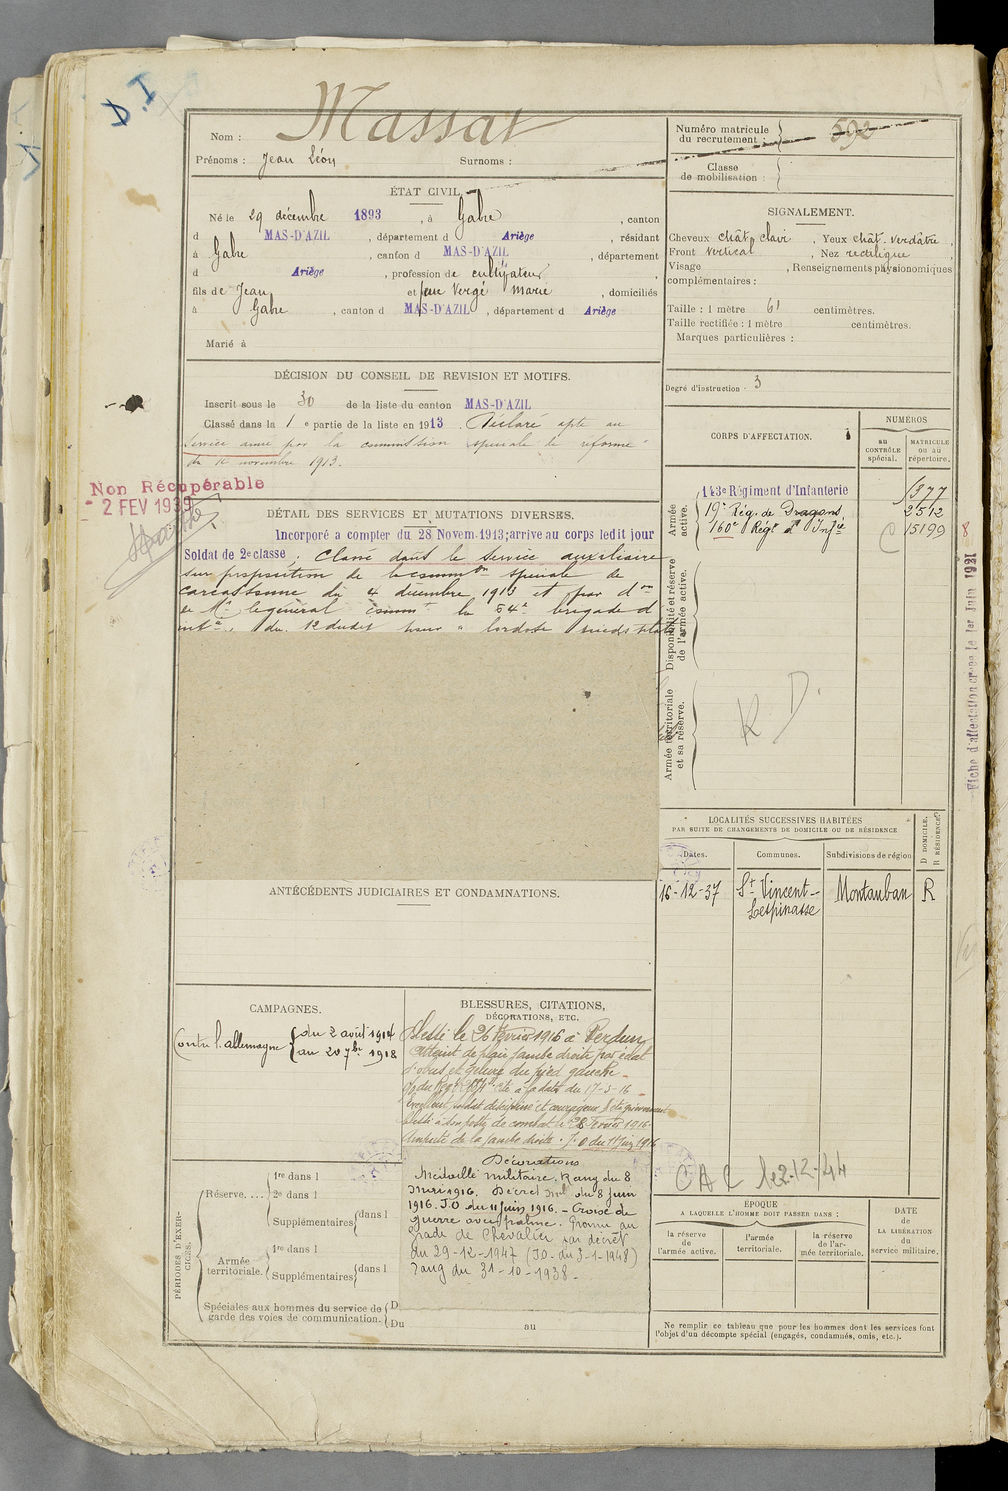 D.I
Nom : Massat
Prénoms : Jean Léon Surnoms :
Numéro matricule
du recrutement : 592
Classe
de mobilisation :
ÉTAT CIVIL.
Né le 29 décembre 1893, à Gabre, canton
d MAS-D'AZIL, département d Ariège, résidant
à Gabre, canton d MAS-D'AZIL, département
d Ariège, profession de cultivateur,
fils de Jean et feue Vergé Marie, domiciliés
à Gabre, canton d MAS-D'AZIL, département d Ariège
Marié à
SIGNALEMENT.
Cheveux chât. clair, Yeux chât. verdâtre,
Front vertical, Nez rectiligne,
Visage , Renseignements physionomiques
complémentaires :
Taille : 1 mètre 61 centimètres.
Taille rectifiée : 1 mètre centimètres.
Marques particulières :
Degré d'instruction · 3
DÉCISION DU CONSEIL DE REVISION ET MOTIFS.
Inscrit sous le 30 de la liste du canton MAS-D'AZIL
Classé dans la 1 e partie de la liste en 1913. Déclaré apte au
service armé par la commission spéciale de réforme
du novembre 1913.
Non Récupérable
2 FEV 1939
DÉTAIL DES SERVICES ET MUTATIONS DIVERSES.
Incorporé a compter du 28 Novem. 1913; arrive au corps ledit jour
Soldat de 2e classe. Classé dans le service auxiliaire
sur proposition de la common spéciale de
Carcassonne du 4 décembre 1913 et par don
de Mr le général commt la 64e brigade d'
inf. du 12 dudit pour "lordose pieds plats
CORPS D'AFFECTATION.
NUMÉROS
au
CONTRÔLE
spécial.
MATRICULE
ou au
répertoire.
Armée
active.
143e Régiment d'Infanterie 1377
19e Rég. de Dragons, 2512
160e Régt d'Infie C 15199
Disponibilité et réserve
de l'armée active.
Armée territoriale
et sa réserve.
R D.
8
Fiche d'affectation créée le 1er Juin 1921
LOCALITÉS SUCCESSIVES HABITÉES
PAR SUITE DE CHANGEMENTS DE DOMICILE OU DE RÉSIDENCE
Dates.
Communes.
Subdivisions de région
D DOMICILE.
R RÉSIDENCE
16-12-37 St Vincent- Montauban R
Lespinasse
ANTÉCÉDENTS JUDICIAIRES ET CONDAMNATIONS.
CAMPAGNES.
Contre l'allemagne
du 2 août 1914
au 20 7bre 1918
BLESSURES, CITATIONS,
DÉCORATIONS, ETC.
Blessé le 26 Février 1916 à Verdun
Atteint de plaie jambe droite par éclat
d'obus et gelure du pied gauche -
du Regt Cité à la date du 17-3-16
Excellent soldat discipliné et courageux, a été grièvement
blessé à son poste de combat le 26 Février 1916.
Amputé de la jambe droite. J.O du 11 juin 1916
Décorations
Médaille militaire. Rang du 8
mai 1916. Décret du 8 juin
1916. J.O du 11 juin 1916. - Croix de
guerre avec palme. Promu au
grade de Chevalier par décret
du 29-12-1947 (JO. du 3-1-1948)
rang du 31-10-1938-
CAR le 2-12-44
PÉRIODES D'EXER-
CICES.
Réserve....
1re dans l
2e dans l
Supplémentaires dans l
Armée
territoriale.
1re dans l
Supplémentaires dans l
Spéciales aux hommes du service de
garde des voies de communication.
D
Du au
ÉPOQUE
A LAQUELLE L'HOMME DOIT PASSER DANS :
la réserve
de
l'armée active.
l'armée
territoriale.
la réserve
de l'ar-
mée territoriale.
DATE
de
LA LIBÉRATION
du
service militaire.
Ne remplir ce tableau que pour les hommes dont les services font
l'objet d'un décompte spécial (engagés, condamnés, omis, etc.).